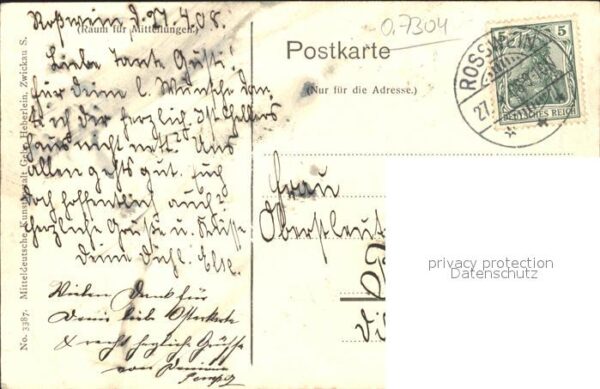 Roßwein, d. 27.4.08.
(Raum für Mitteilungen.)
Liebe Tante Gusti!
Für Deine l. Wünsche dan-
ke ich Dir herzlich. Ist
haus nicht nett? Uns
allen gehts gut. Euch
doch hoffentlich auch?
Herzliche Grüsse u. Küsse
Deine Else.
Vielen Dank für
Deine liebe Osterkarte
& recht herzliche Grüsse
von
No. 3387. Mitteldeutsche Kunstanstalt Gebr. Heberlein, Zwickau S.
0,7304
Postkarte
(Nur für die Adresse.)
5 5
DEUTSCHES REICH
ROSSWEIN
27.
Frau
Oberstleut
privacy protection
Datenschutz